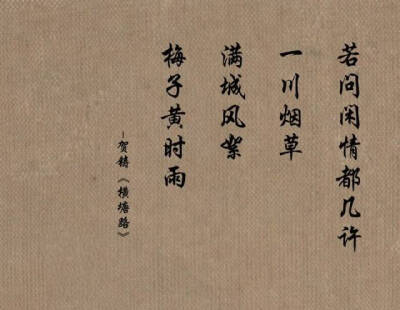 若问闲情都几许
一川烟草
满城风絮
梅子黄时雨
-贺铸《横塘路》